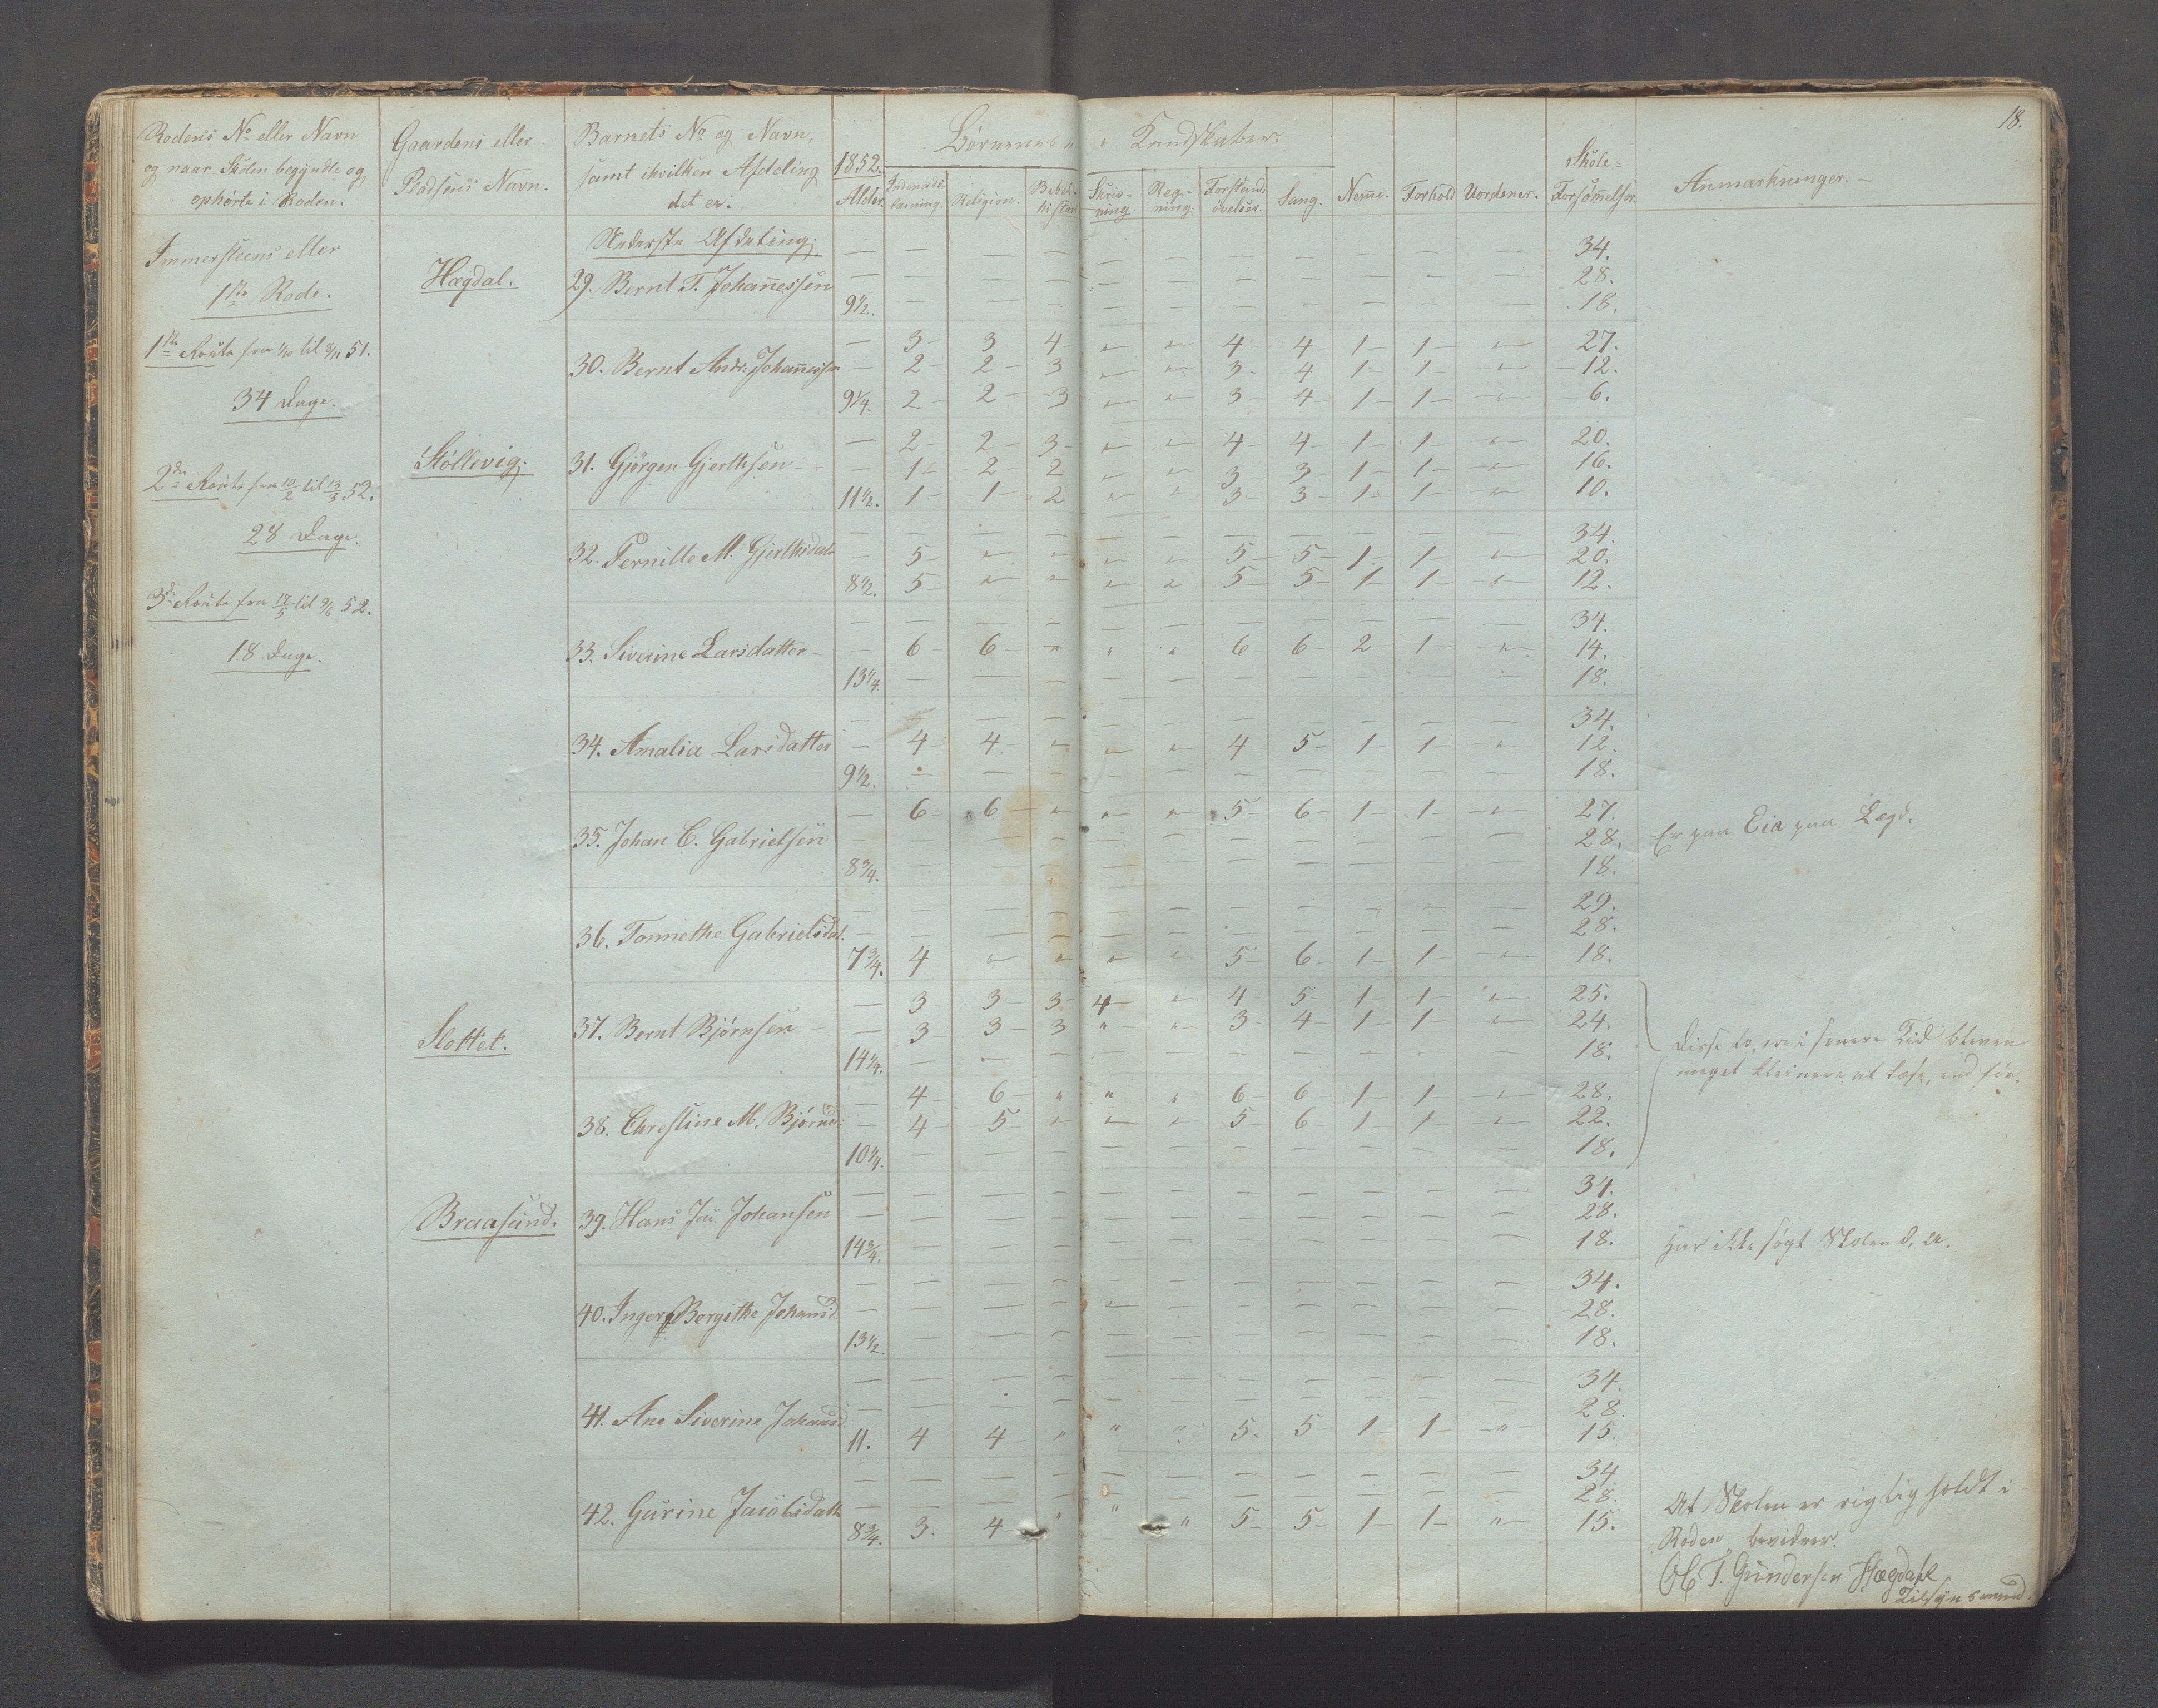 18.
Rodens No eller Navn og naar Skolen begyndte og ophørte i Roden.
Gaardens eller Pladsens Navn.
Barnets No og Navn, samt ihvilken Afdeling det er.
1852. Alder.
Børnenes Kundskaber.
Indenadslæsning. Religion. Bibelhistor. Skrivning. Regning. Forstandsøvelser. Sang. Nemme. Forhold Uordener. Skole-Forsømmelser. Anmærkninger.
Immersteens eller
1ste Rode.
1ste Route fra 1/10 til 8/11 51.
34 Dage.
2den Route fra 10/2 til 13/3 52.
28 Dage.
3de Route fra 17/5 til 9/6 52.
18 Dage.
Nederste Afdeling.
— — — — — — — — — — — — 34.
Hægdal. 29. Bernt T. Johannessen — — — — — — — — — — — 28.
9½. — — — — — — — — — — 18.
— 3 3 4 " " 4 4 1 1 " 27.
30. Bernt Andr. Johannessen — 2 2 3 " " 3 4 1 1 " 12.
9¼. 2 2 3 " " 3 4 1 1 " 6.
— 2 2 3 " " 4 4 1 1 " 20.
Støllevig. 31. Gjørgen Gjerthsen — 1 2 2 " " 3 3 1 1 " 16.
11½. 1 1 2 " " 3 3 1 1 " 10.
— — — — — — — — — — — 34.
32. Pernille M. Gjerthsdat. — 5 " " " " 5 5 1 1 " 20.
8½. 5 " " " " 5 5 1 1 " 12.
— — — — — — — — — — — 34.
33. Siverine Larsdatter — 6 6 " " " 6 6 2 1 " 14.
13¼ — — — — — — — — — — 18.
— — — — — — — — — — — 34.
34. Amalia Larsdatter — 4 4 " " " 4 5 1 1 " 12.
9½. — — — — — — — — — — 18.
— 6 6 " " " 5 6 1 1 " 27.
35. Johan C. Gabrielsen — — — — — — — — — — — 28. Er paa Eia paa Lægd.
8¾. — — — — — — — — — — 18.
— — — — — — — — — — — 29.
36. Tonnethe Gabrielsdat. — — — — — — — — — — — 28.
7¾. 4 " " " " 5 6 1 1 " 18.
— 3 3 3 4 " 4 5 1 1 " 25.
Slottet. 37. Bernt Bjørnsen — 3 3 3 " " 3 4 1 1 " 24.
14¼. — — — — — — — — — — 18.
Disse to, ere i senere Tid bleven
meget kleinere at læse, end før.
— 4 6 " " " 6 6 1 1 " 28.
38. Chrestine M. Bjørnsd. — 4 5 " " " 5 6 1 1 " 22.
10¼. — — — — — — — — — — 18.
— — — — — — — — — — — 34.
Braasund. 39. Hans Jac. Johansen — — — — — — — — — — — 28.
14¾. — — — — — — — — — — 18. Har ikke søgt Skolen d. A.
— — — — — — — — — — — 34.
40. Inger Bergithe Johansd. — — — — — — — — — — — 28.
13½. — — — — — — — — — — 18.
— — — — — — — — — — — 34.
41. Ane Siverine Johansd. — — — — — — — — — — — 28.
11. 4 4 " " " 5 5 1 1 " 15.
— — — — — — — — — — — 34
42. Gurine Jacobsdatt. — — — — — — — — — — — 28.
8¾. 3. 4 " " " 5 5 1 1 " 15.
At Skolen er rigtig holdt i
Roden bevidner.
Ol. T. Gundersen Hægdahl
Tilsynsmand